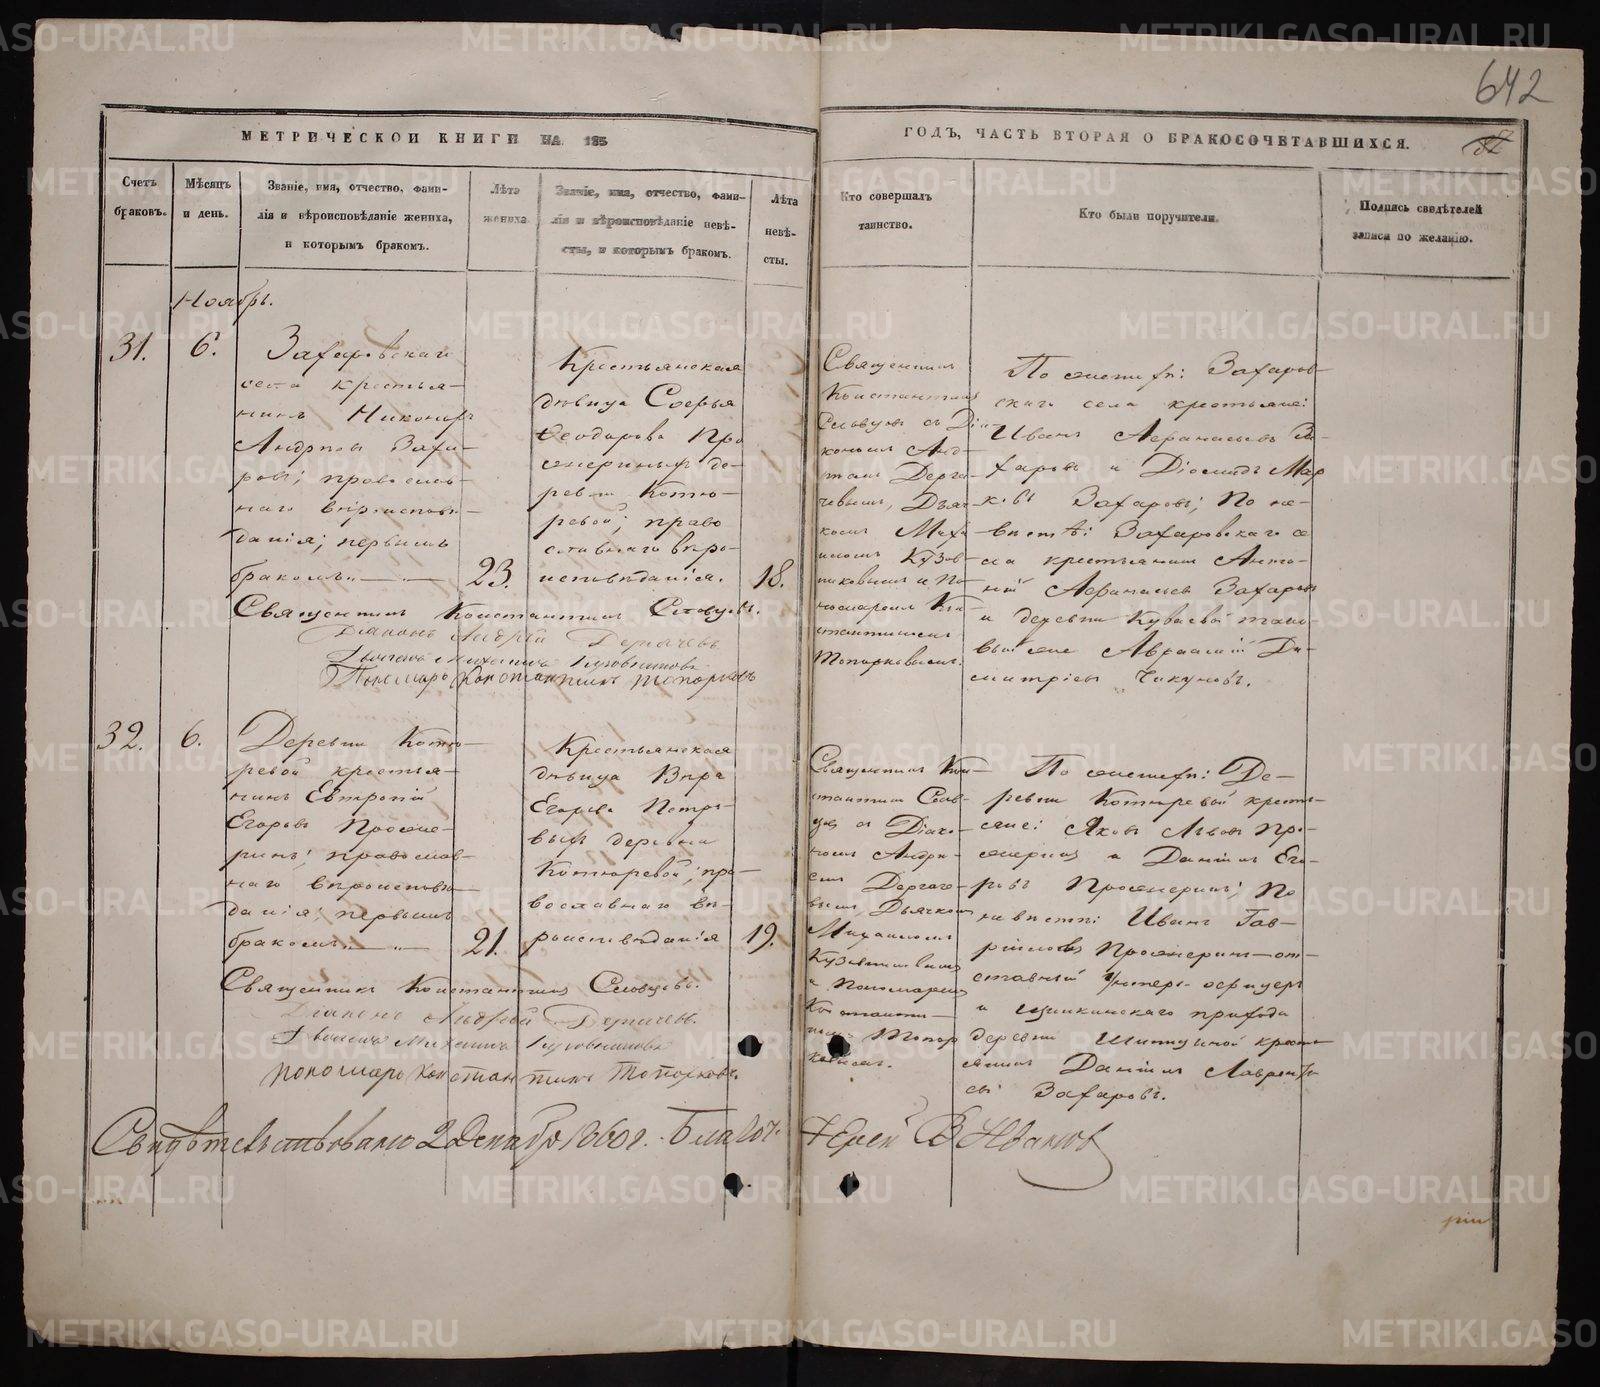 642
МЕТРИЧЕСКОЙ КНИГИ НА 185
ГОДЪ, ЧАСТЬ ВТОРАЯ О БРАКОСОЧЕТАВШИХСЯ.
Счетъ
браковъ.
Мѣсяцъ
и день.
Званіе, имя, отчество, фами-
лія и вѣроисповѣданіе жениха,
и которымъ бракомъ.
Лѣта
жениха
Званіе, имя, отчество, фами-
лія и вѣроисповѣданіе невѣ-
сты, и которымъ бракомъ.
Лѣта
невѣ-
сты.
Кто совершалъ
таинство.
Кто были поручители.
Подпись свидѣтелей
записи по желанію.
Ноябрь.
31.
6.
Захаровскаго
села крестья-
нинъ Никоноръ
Андреевъ Заха-
ровъ; православ-
наго вѣроисповѣ-
данія; первымъ
бракомъ.
23.
Крестьянская
дѣвица Софья
Ѳеодорова Про
скериныхъ де-
ревни Котю-
ревой; право
славнаго вѣро-
исповѣданія.
18.
Священникъ
Константинъ
Словцовъ съ Діа-
кономъ Анд-
Дерга-
чевымъ, Дьяч-
комъ Миха
иломъ Кузов-
никовымъ и По-
номаремъ Кон-
стантиномъ
Топорковымъ.
По женихѣ: Захаров-
скаго села крестьяне:
Иванъ Афанасьевъ За-
харовъ и Діомидъ Мар
ковъ Захаровъ; По не-
вѣстѣ: Захаровскаго се
ла крестьянинъ Анто-
ній Афанасьевъ Захаровъ
и деревни
Авраамій Ди-
митріевъ Чикуновъ.
Священникъ Константинъ Словцовъ.
Діаконъ Андрей Дергачевъ
Дьячекъ Михаилъ Кузовниковъ
Пономарь Константинъ Топорковъ
32.
6.
Деревни Котю-
ревой крестья-
нинъ Евтропій
Егоровъ Проске-
ринъ; православ-
наго вѣроисповѣ-
данія; первымъ
бракомъ.
21.
Крестьянская
дѣвица Вѣра
Егорова Петро-
выхъ деревни
Котюревой; пра-
вославнаго вѣ-
роисповѣданія
19.
Священникъ Кон-
стантинъ Слов-
цовъ съ Діако-
номъ Андре-
емъ Дергаче-
вымъ, Дьячкомъ
Михаиломъ
Кузовниковымъ
и Пономаремъ
Константи-
номъ Топор
ковымъ.
По женихѣ: Де-
ревни Котюревой кресть-
яне: Яковъ Львовъ Про-
скеринъ и Даніилъ Его-
ровъ Проскеринъ; По
невѣстѣ: Иванъ Гав-
риловъ Проскеринъ—от-
ставный Унтеръ-офицеръ
и прихода
деревни кресть
янинъ Даніилъ Лаврентье
въ Захаровъ.
Священникъ Константинъ Словцовъ.
Діаконъ Андрей Дергачевъ.
Дьячекъ Михаилъ Кузовниковъ
пономарь Константинъ Топорковъ.
Свидѣтельствовано 2 Декабря 1860 г. Благоч. Іерей В Ивановъ